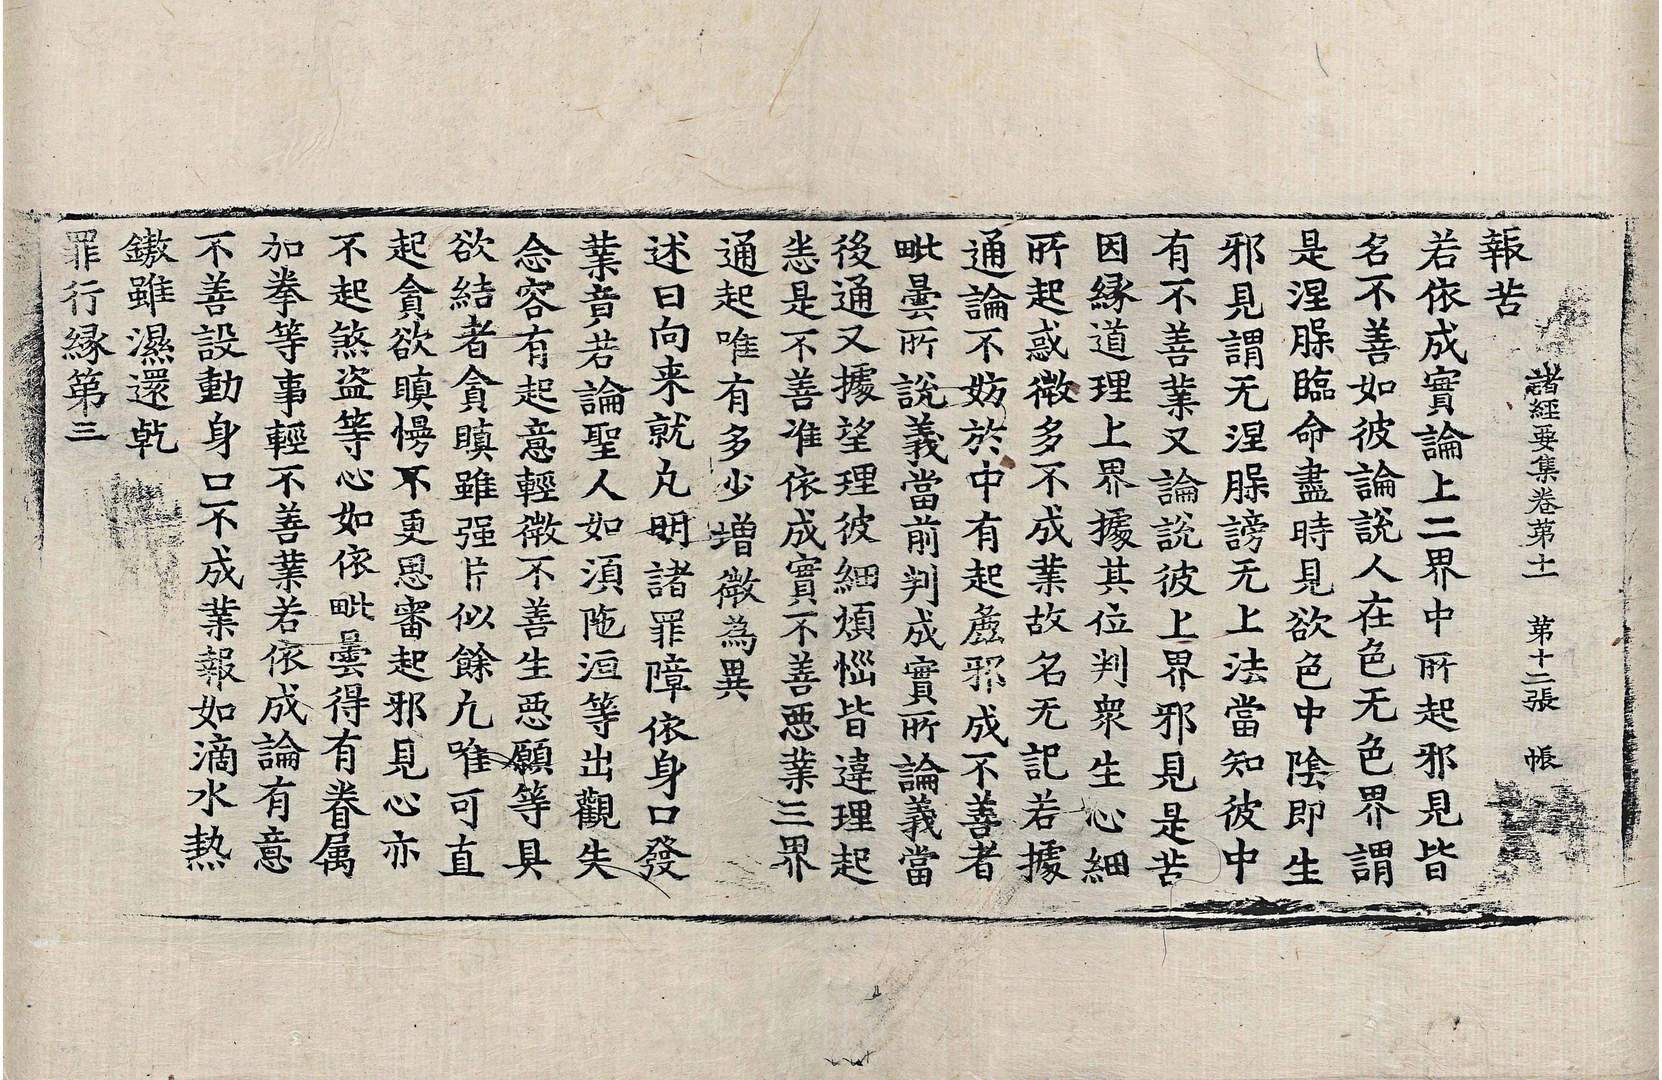 諸經要集卷第十二　第十二張　帳
報苦
若依成實論上二界中所起邪見皆
名不善如彼論說人在色无色界謂
是涅䏶臨命盡時見欲色中陰即生
邪見謂无涅䏶謗无上法當知彼中
有不善業又論說彼上界邪見是苦
因緣道理上界據其位判衆生心細
所起惑微多不成業故名无記若據
通論不妨於中有起麁邪成不善者
毗曇所說義當前判成實所論義當
後通又據望理彼細煩惱皆違理起
悉是不善准依成實不善惡業三界
通起唯有多少增微為異
述曰向来就凡明諸罪障依身口發
業竟若論聖人如湏陁洹等出觀失
念容有起意輕微不善生惡願等具
欲結者貪瞋雖强片似餘凢唯可直
起貪欲瞋慢不更思審起邪見心亦
不起煞盗等心如依毗曇得有眷属
加拳等事輕不善業若依成論有意
不善設動身口不成業報如滴水熱
鏊雖濕還乹
罪行緣第三